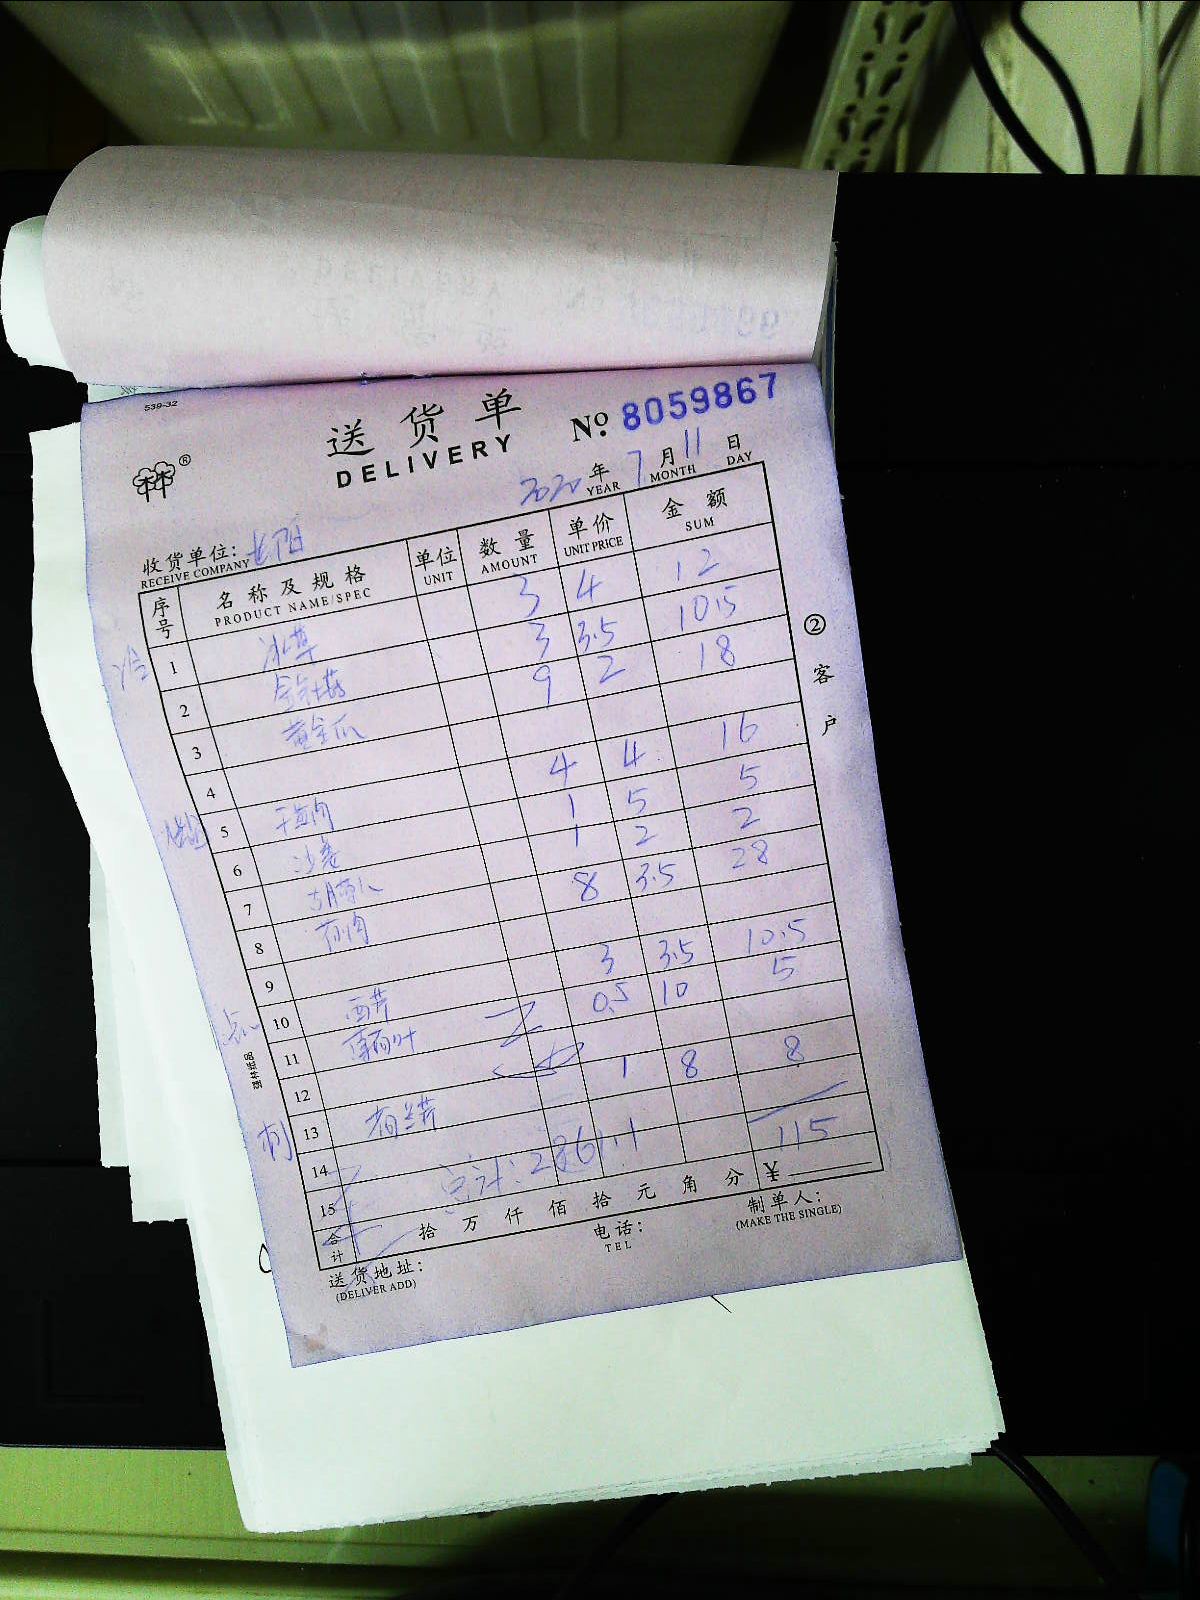 539-32
送货单
DELIVERY
№ 8059867
林®
2020 年 7 月 11 日
YEAR MONTH DAY
收货单位:
RECEIVE COMPANY
序号 名称及规格 单位 数量 单价 金额
PRODUCT NAME/SPEC UNIT AMOUNT UNIT PRICE SUM
1 冰草 3 4 12
2 3 3.5 10.5
3 黄金瓜 9 2 18
4
5 4 4 16
6 沙姜 1 5 5
7 1 2 2
8 8 3.5 28
9
10 西芹 3 3.5 10.5
11 薄荷叶 0.5 10 5
12
13 1 8 8
14 115
15 总计: 2861.1
合计 拾 万 仟 佰 拾 元 角 分 ¥
送货地址:
(DELIVER ADD)
电话:
TEL
制单人:
(MAKE THE SINGLE)
②客户